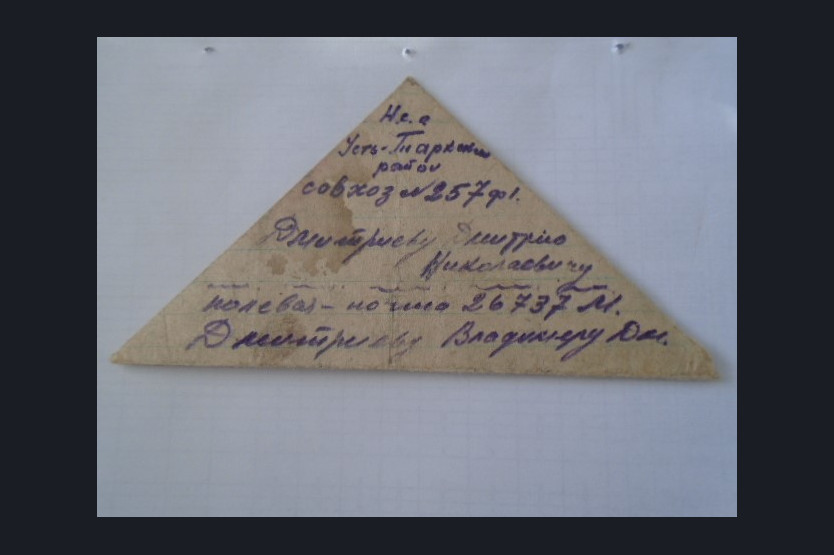 Усть-Таркский
район
совхоз № 257 ф 1.
Дмитриеву Дмитрию
Николаевичу
полевая - почта 26737 М.
Дмитриеву Владимеру Дм.